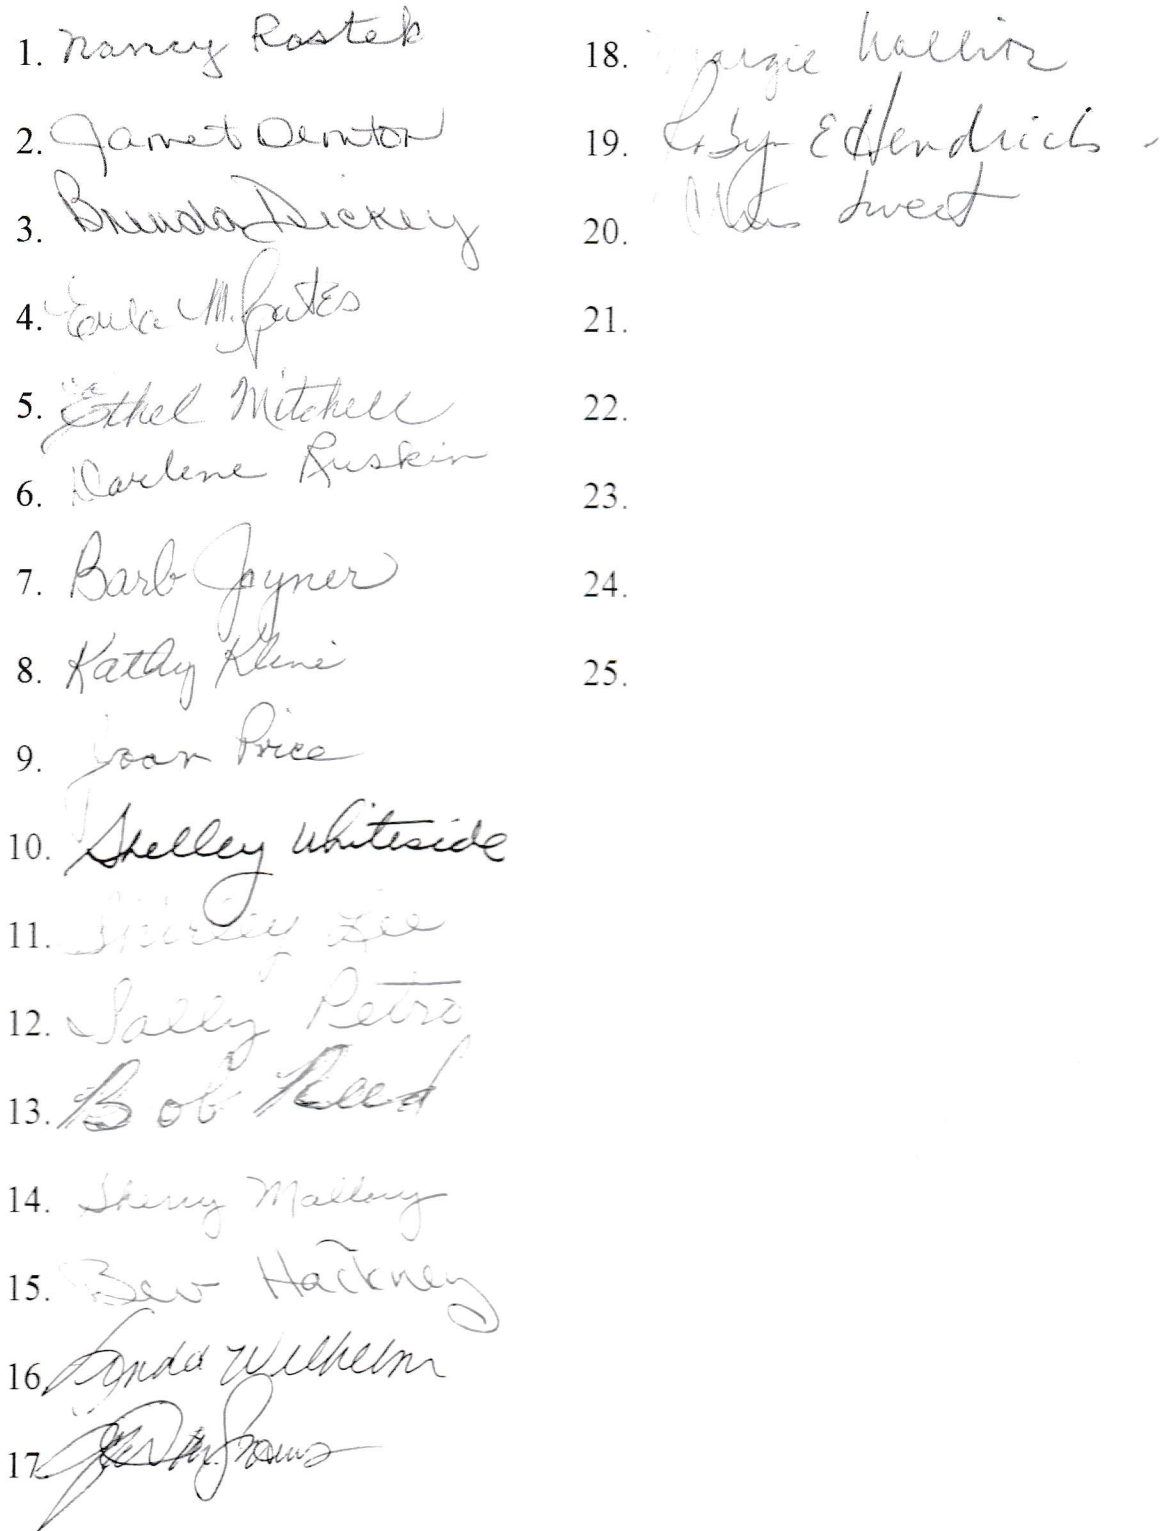 1. Nancy Rostek
2. Janet Denton
3. Brenda Dickey
4. M. Gates
5. Ethel Mitchell
6. Darlene Ruskin
7. Barb Joyner
8. Kathy Kline
9. Joan Price
10. Shelley Whiteside
11. Shirley Lee
12. Sally Petro
13. Bob Reed
14. Sherry Mallory
15. Bev Hackney
16. Lynda Wilhelm
17.
18. Margie
19. Robyn E Hendricks
20. Chris Sweet
21.
22.
23.
24.
25.